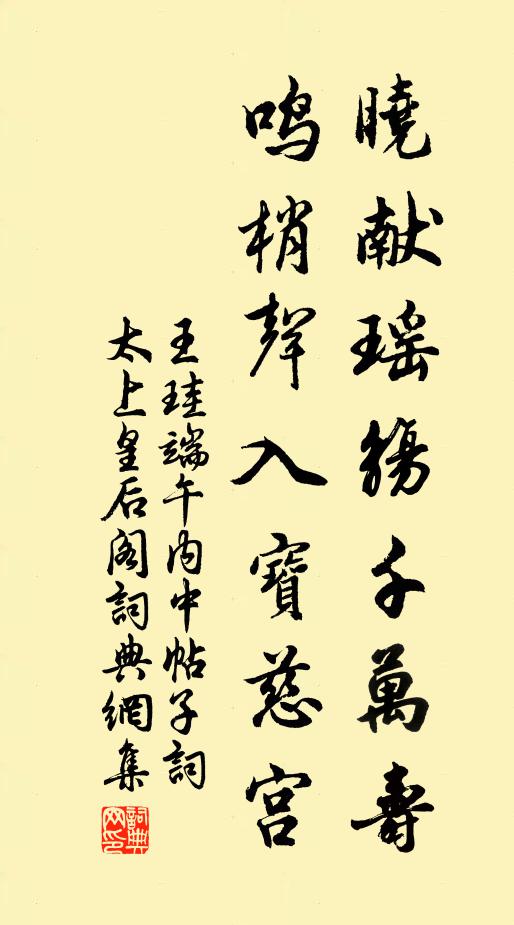 曉献瑶觴千萬壽
鳴梢聲入寶慈宫
王珪端午内中帖子詞
太上皇后阁詞典網集
詞典网印